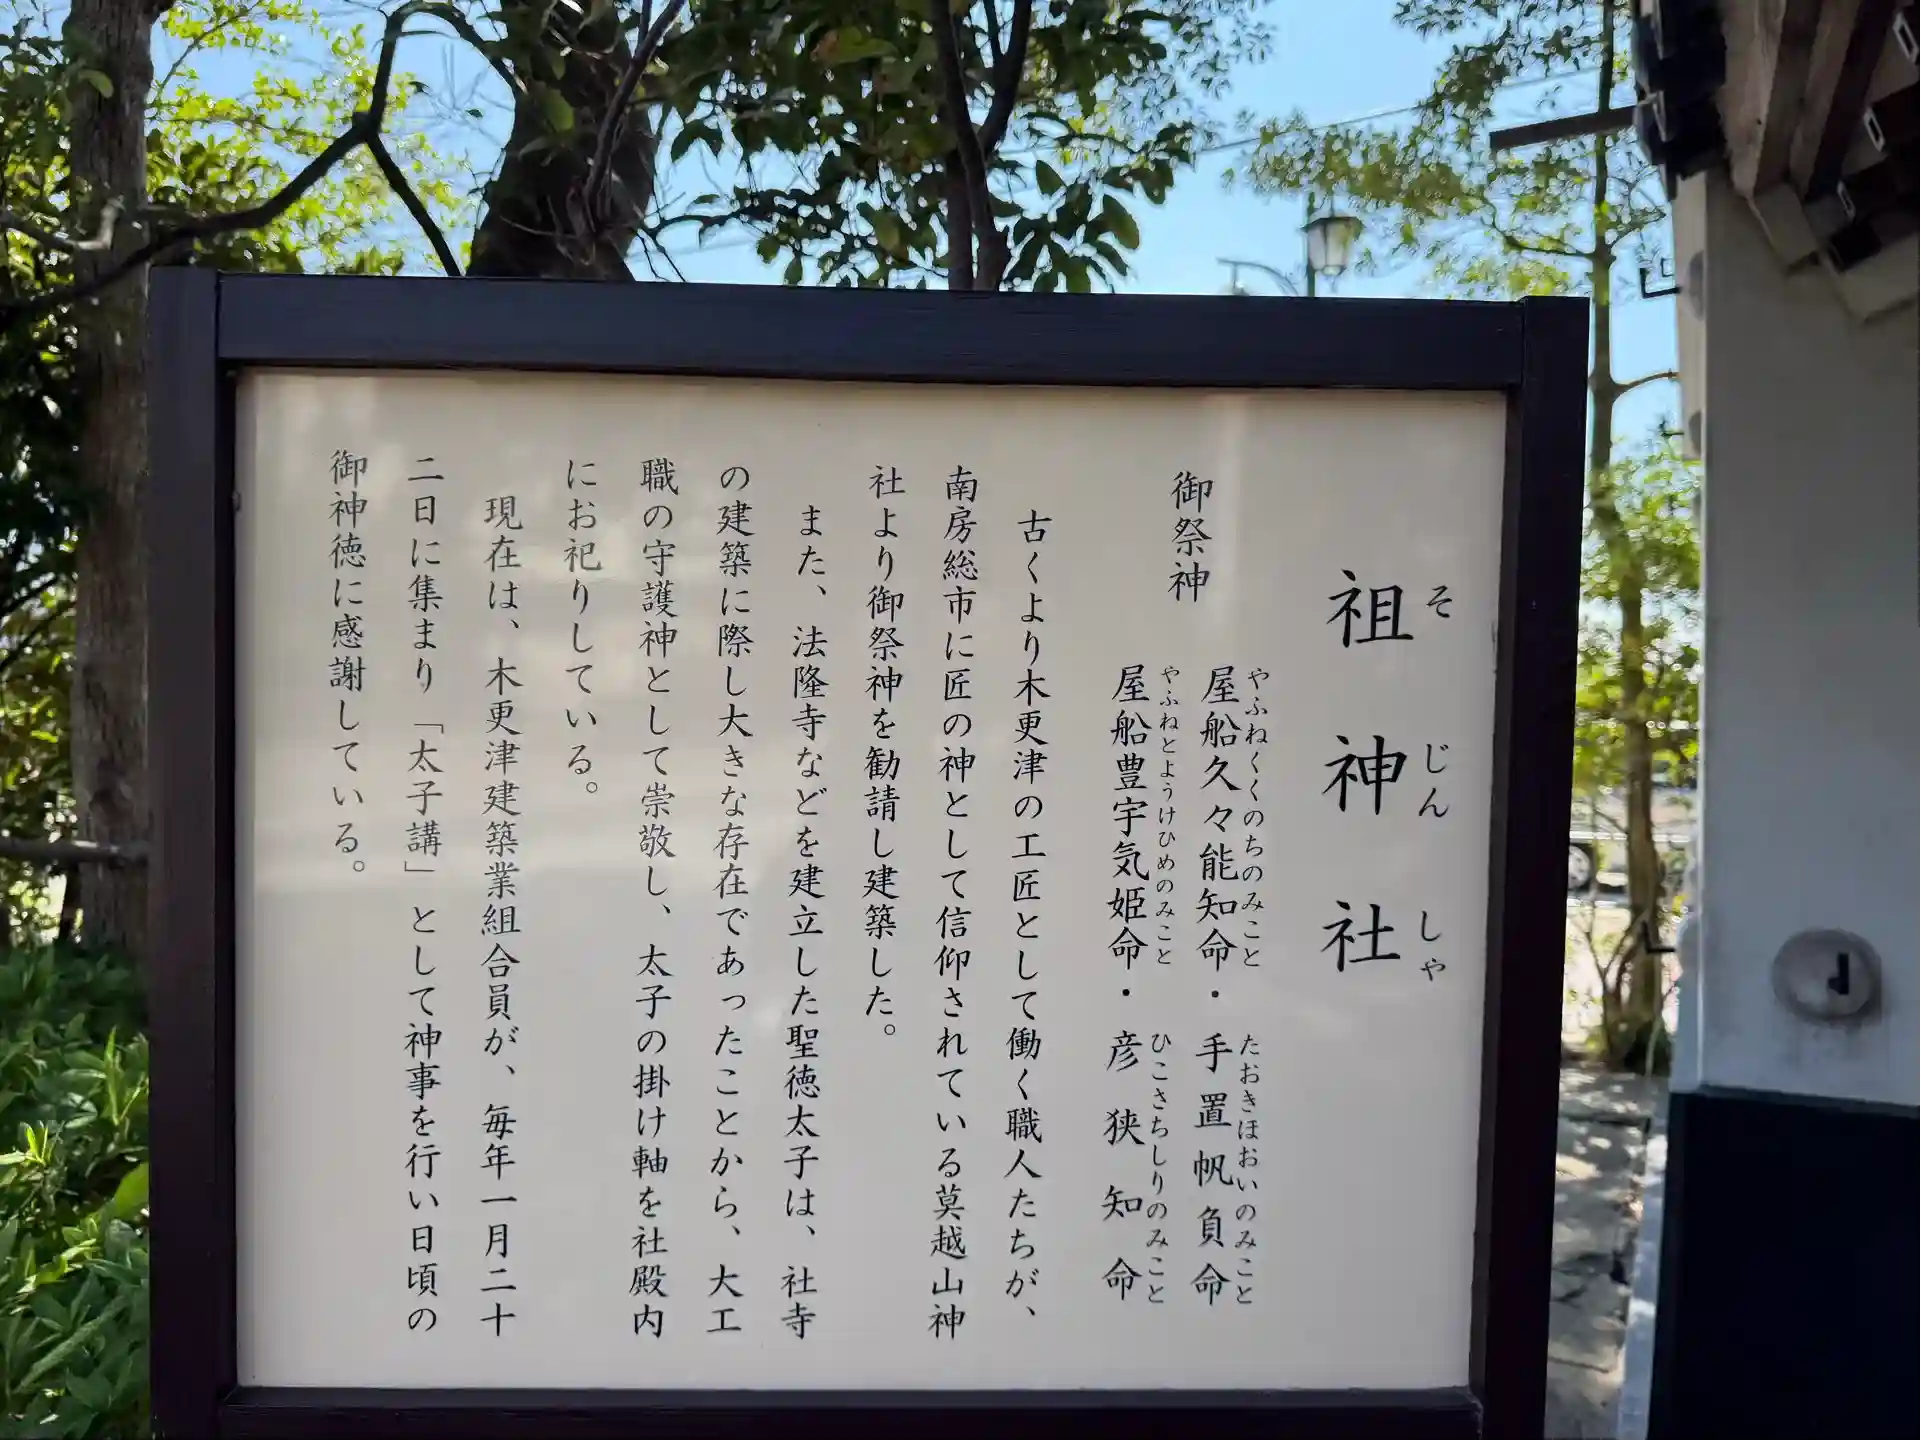 祖神社
そじんしゃ
御祭神
屋船久々能知命・手置帆負命
やふねくくのちのみこと
たおきほおいのみこと
屋船豊宇気姫命・彦狭知命
やふねとようけひめのみこと
ひこさちしりのみこと
古くより木更津の工匠として働く職人たちが、
南房総市に匠の神として信仰されている莫越山神
社より御祭神を勧請し建築した。
また、法隆寺などを建立した聖徳太子は、社寺
の建築に際し大きな存在であったことから、大工
職の守護神として崇敬し、太子の掛け軸を社殿内
にお祀りしている。
現在は、木更津建築業組合員が、毎年一月二十
二日に集まり「太子講」として神事を行い日頃の
御神徳に感謝している。